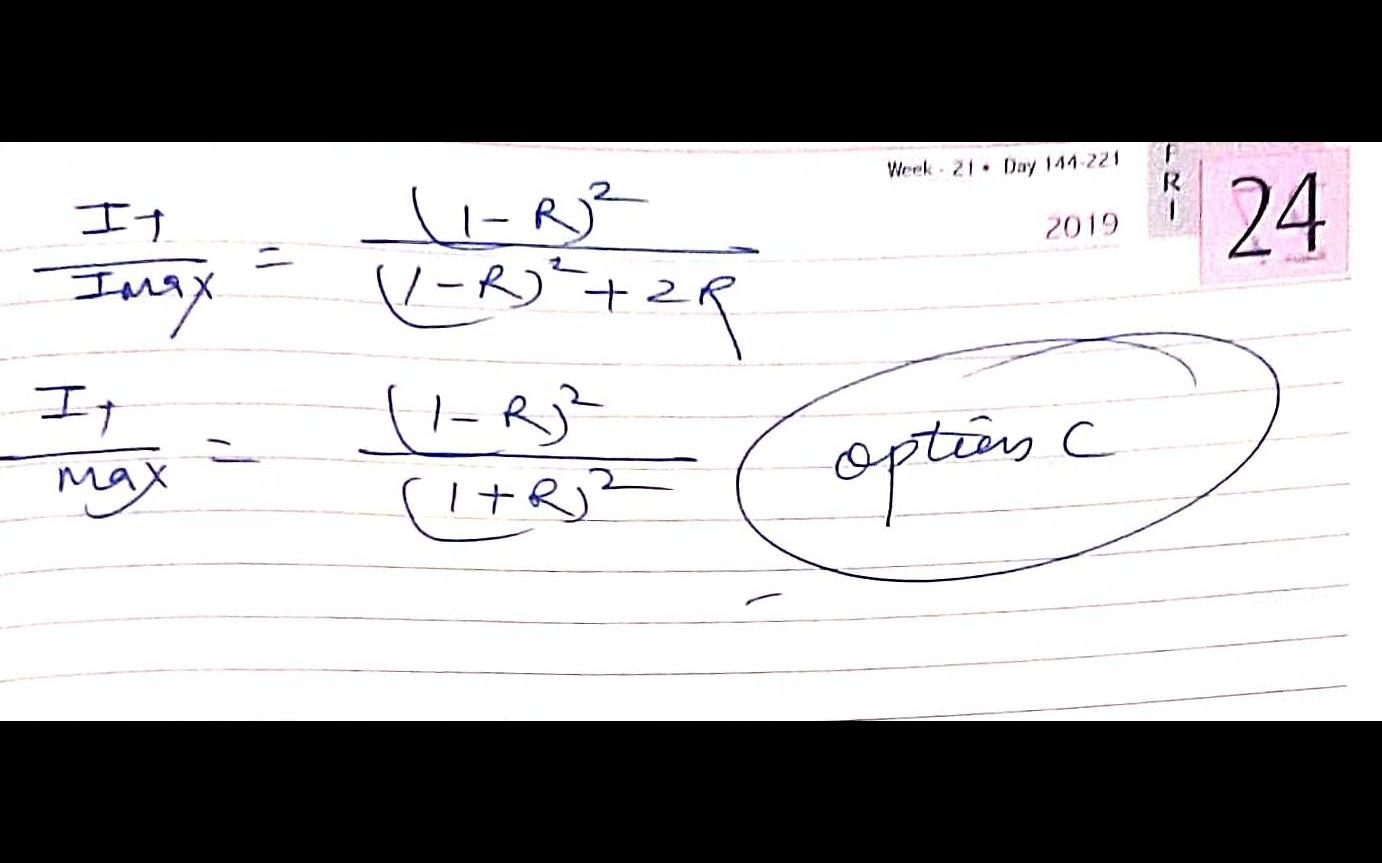 Week - 21 • Day 144-221
FRI
24
2019
I_T / I_max = (1-R)^2 / (1-R)^2 + 2R
I_T / max = (1-R)^2 / (1+R)^2
option C